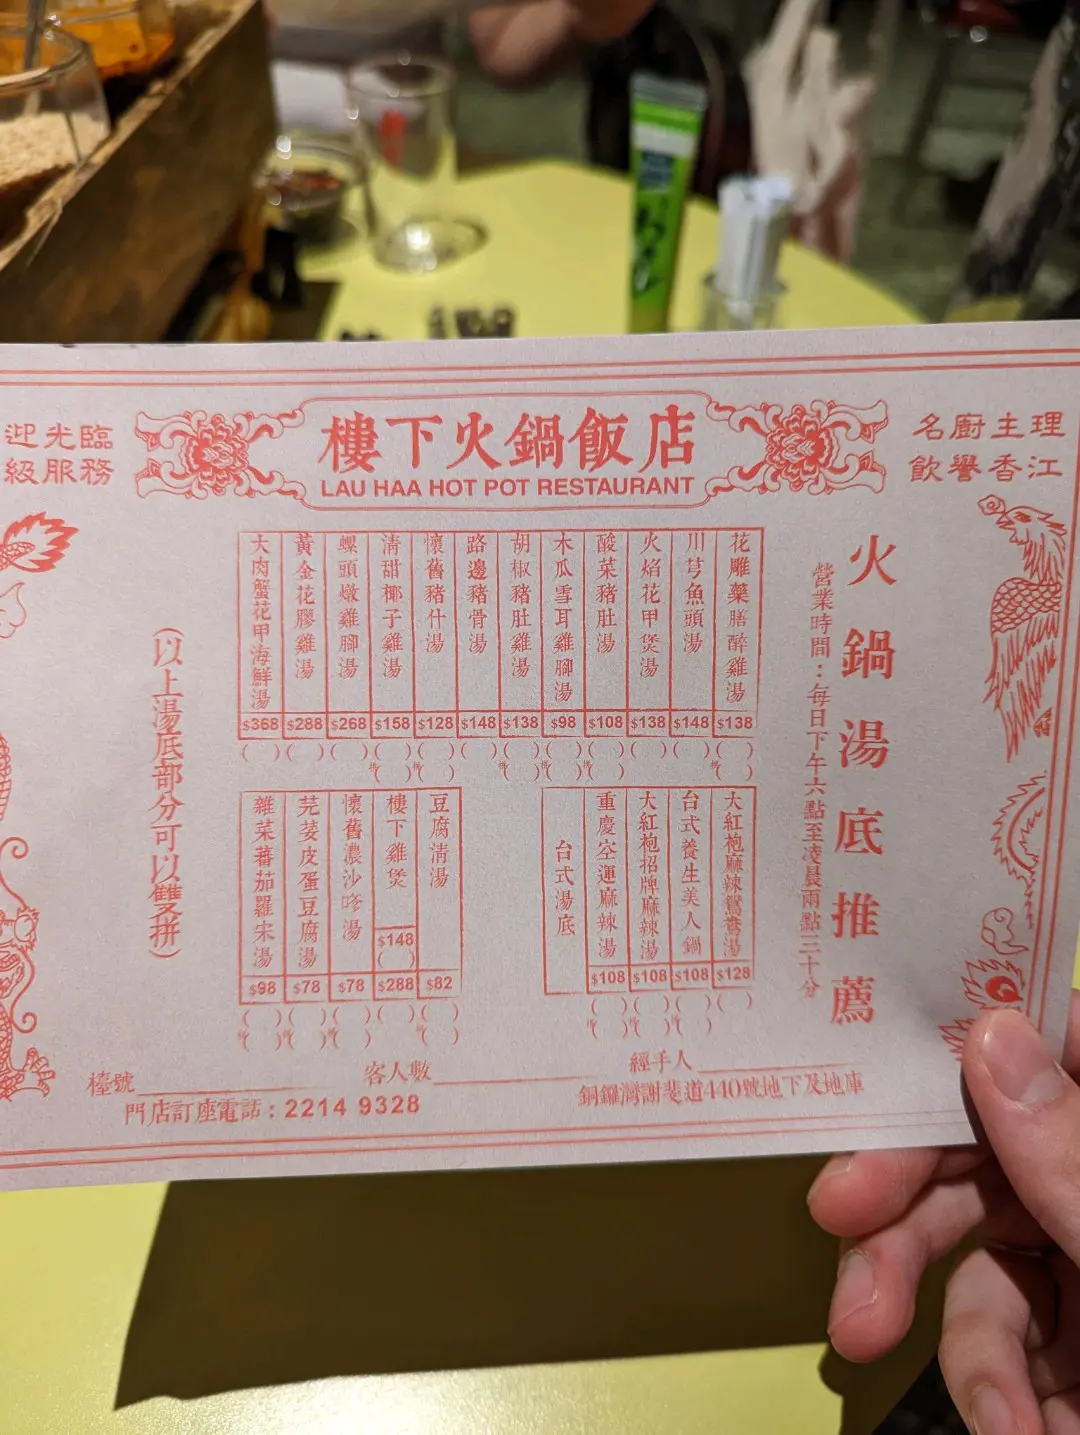 樓下火鍋飯店
LAU HAA HOT POT RESTAURANT
名廚主理
飲譽香江
迎光臨
級服務
火鍋湯底推薦
營業時間：每日下午六點至凌晨兩點三十分
花雕藥膳醉雞湯 $138
川芎魚頭湯 $148
火焰花甲煲湯 $138
酸菜豬肚湯 $108
木瓜雪耳雞腳湯 $98
胡椒豬肚雞湯 $138
路邊豬骨湯 $148
懷舊豬什湯 $128
清甜椰子雞湯 $158
螺頭燉雞腳湯 $268
黃金花膠雞湯 $288
大肉蟹花甲海鮮湯 $368
大紅袍麻辣鴛鴦湯 $128
台式養生美人鍋 $108
大紅袍招牌麻辣湯 $108
重慶空運麻辣湯 $108
台式湯底
豆腐清湯 $82
樓下雞煲 $148 $288
懷舊濃沙嗲湯 $78
芫荽皮蛋豆腐湯 $78
雜菜蕃茄羅宋湯 $98
(以上湯底部分可以雙拼)
檯號
客人數
經手人
門店訂座電話：2214 9328
銅鑼灣謝斐道440號地下及地庫